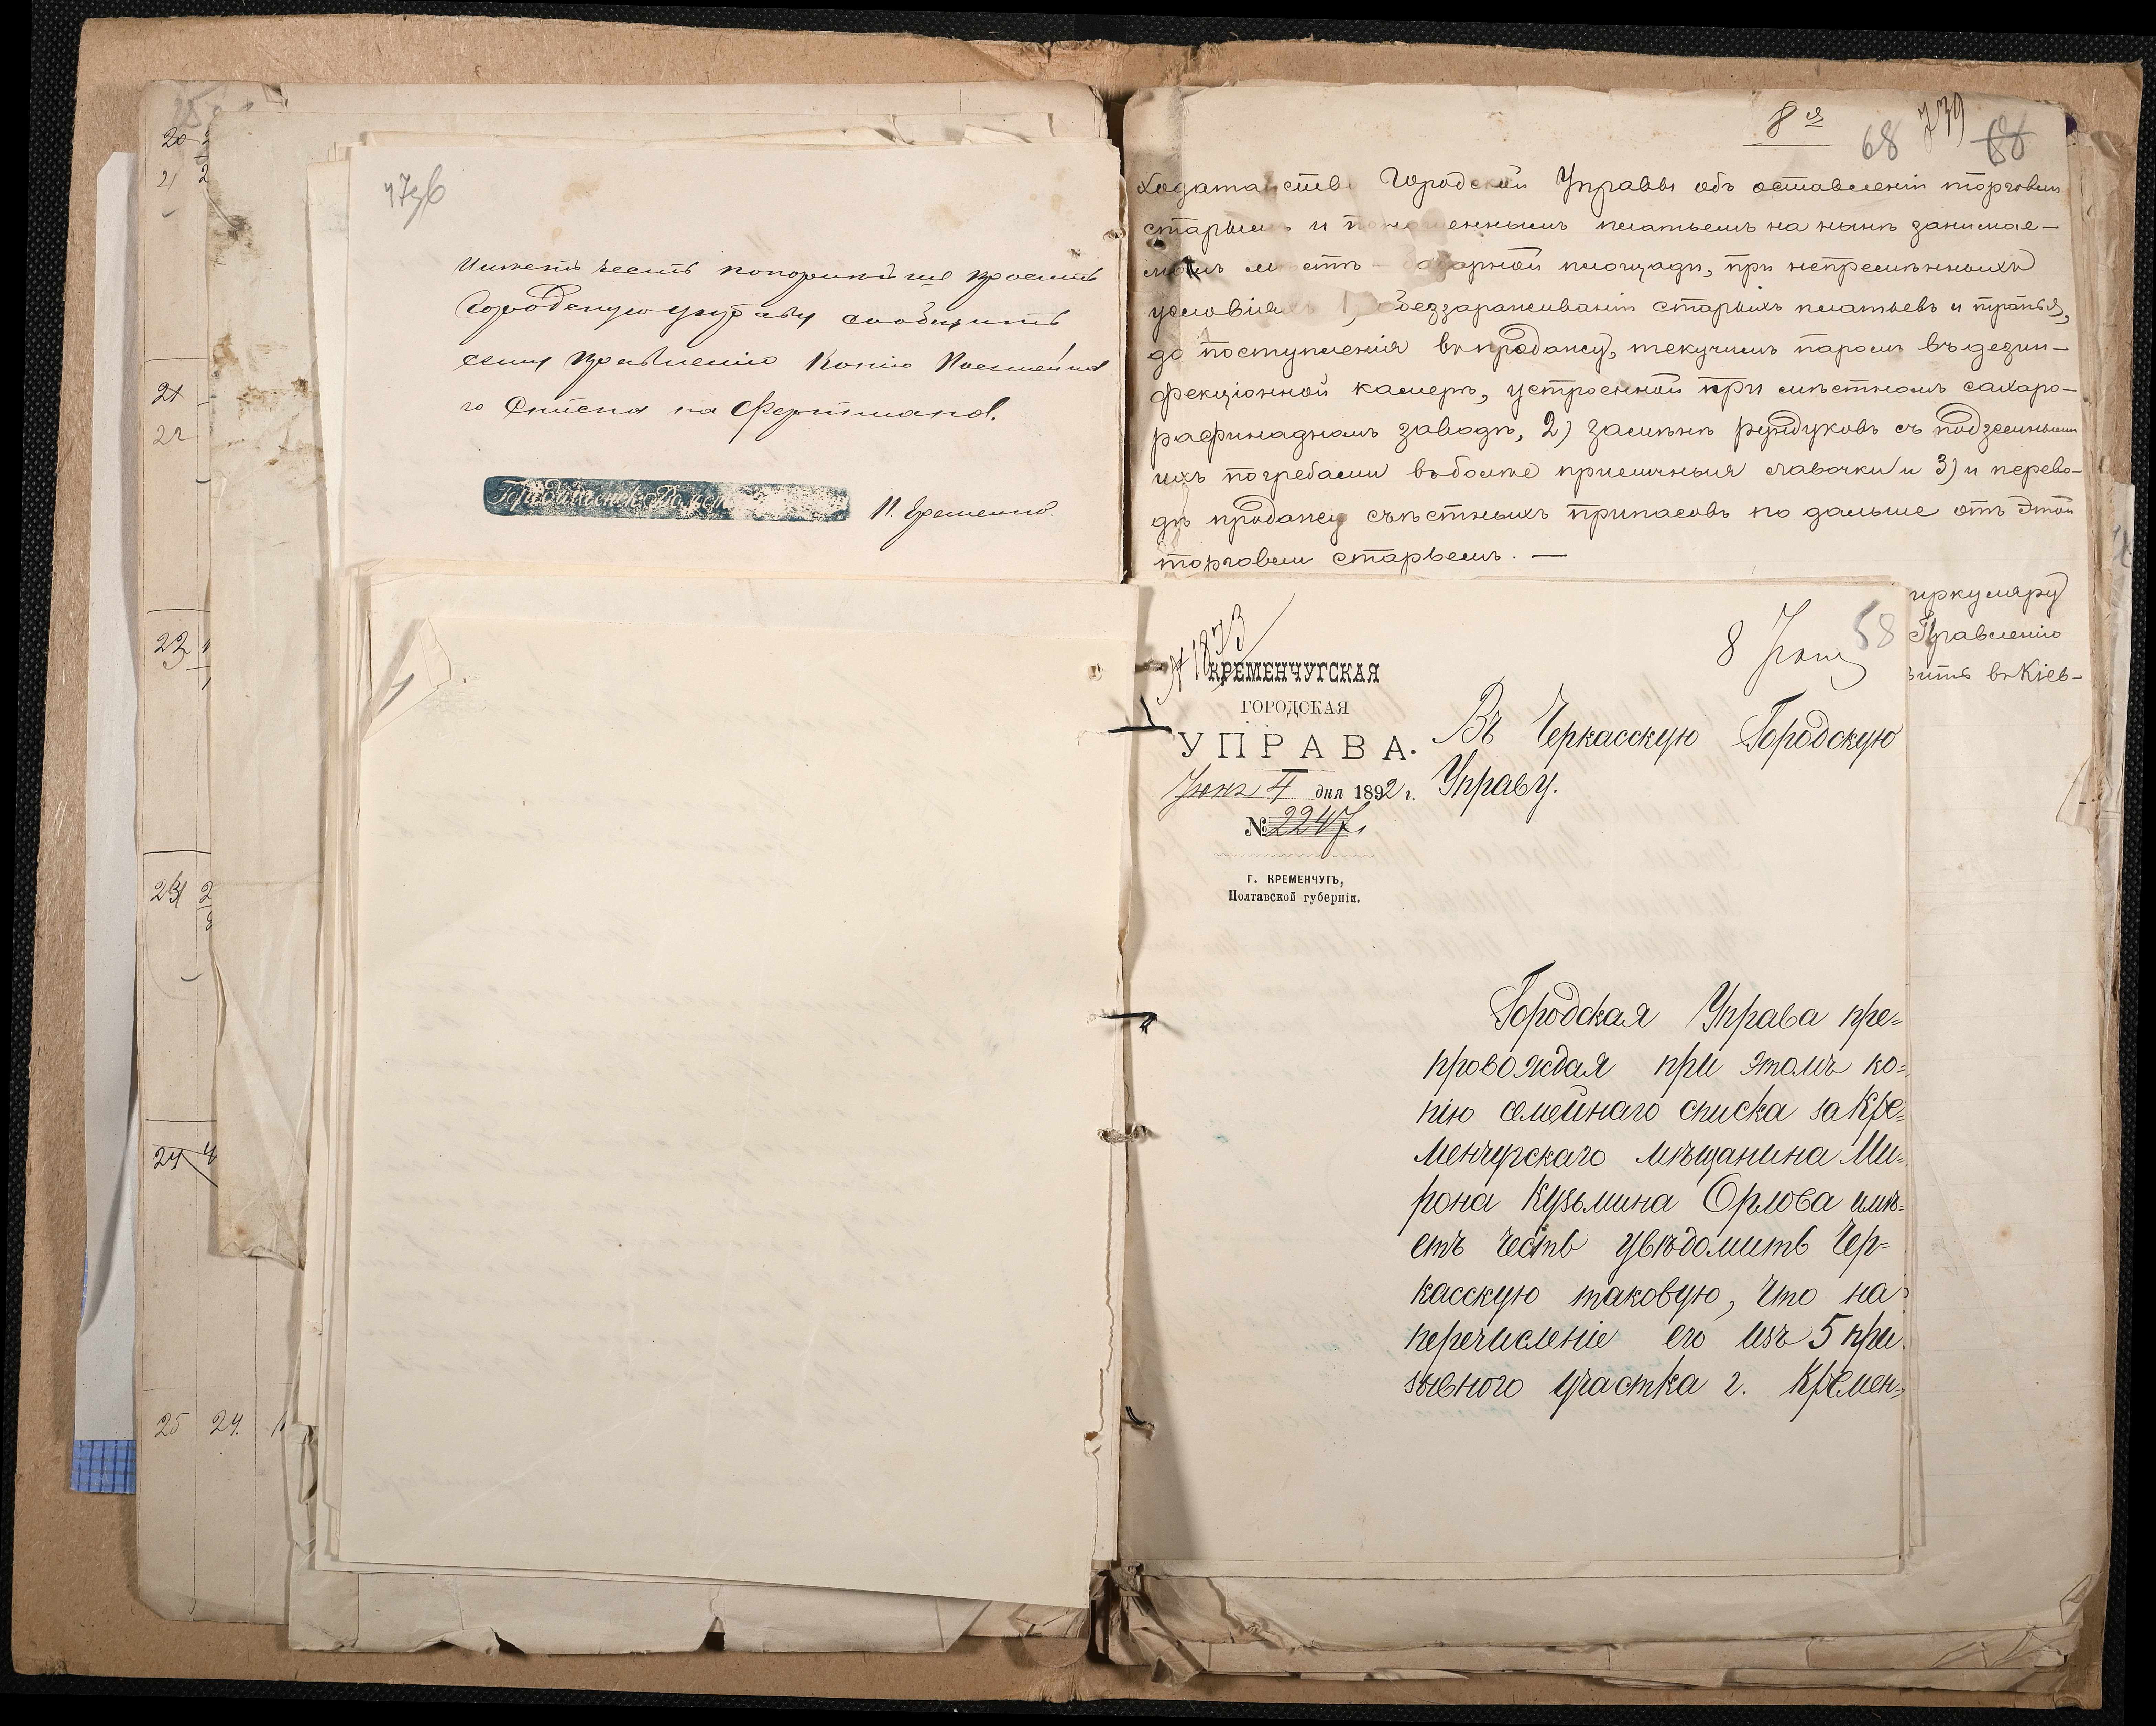 20
21 2
21
22
23
24
25 24.
4736
Имѣетъ честь покорнѣйше просить
Городскую управу сообщить
сему правленію копію посемейна
го списка на Фертмановъ.
Городищенск. Волост
И. Еременко.
8я
68 739 68
ходатайств Городской Управы объ оставленіи торговли
старьемъ и поношеннымъ платьемъ на нынѣ занимае-
момъ мѣстѣ - базарной площади, при непремѣнныхъ
условіяхъ 1, обеззараживаніи старыхъ платьевъ и тряпья,
до поступленія въ продажу, текучимъ паромъ въ дезин-
фекціонной камерѣ, устроенной при мѣстномъ сахаро-
рафинадномъ заводѣ, 2) замѣнѣ рундуковъ съ подземными
ихъ погребами въ болѣе приличныя лавочки и 3) и перево-
дѣ продажи съѣстныхъ припасовъ по дальше отъ этой
торговли старьемъ. —
иркуляру
Правленію
вить въ Кіев-
№ 1873
8 Іюня 58
КРЕМЕНЧУГСКАЯ
ГОРОДСКАЯ
УПРАВА.
Іюня 4 дня 1892 г.
№ 2247
Г. КРЕМЕНЧУГЪ,
Полтавской губерніи.
Въ Черкасскую Городскую
Управу.
Городская Управа пре=
провождая при этомъ ко=
пію семейнаго списка за Кре=
менчугскаго мѣщанина Ми=
рона Кузьмина Орлова имѣ=
етъ честь увѣдомить Чер=
касскую таковую, что на
перечисленіе его изъ 5 при
зывного участка г. Кремен=